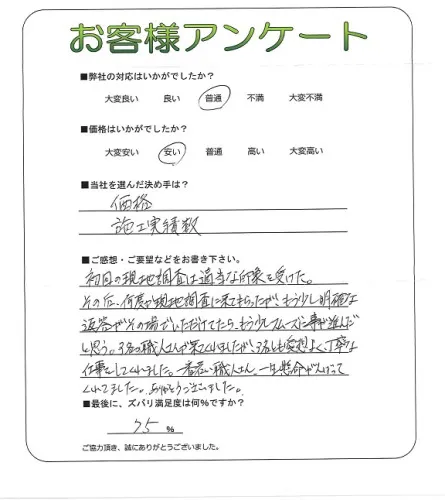 お客様アンケート
■弊社の対応はいかがでしたか？
大変良い 良い 普通 不満 大変不満
■価格はいかがでしたか？
大変安い 安い 普通 高い 大変高い
■当社を選んだ決め手は？
価格
施工実績数
■ご感想・ご要望などをお書き下さい。
初回の現地調査は適当な印象を受けた。
その后、何度か現地調査に来てもらったが、もう少し明確な
返答がその場でいただけてたら、もう少しスムーズに事が進んだ
と思う。3名の職人さんが来てくれましたが、3名とも愛想よく、丁寧な
仕事をしてくれました。一番若い職人さん、一生懸命がんばって
くれてました。ありがとうございました。
■最後に、ズバリ満足度は何％ですか？
75 %
ご協力頂き、誠にありがとうございました。